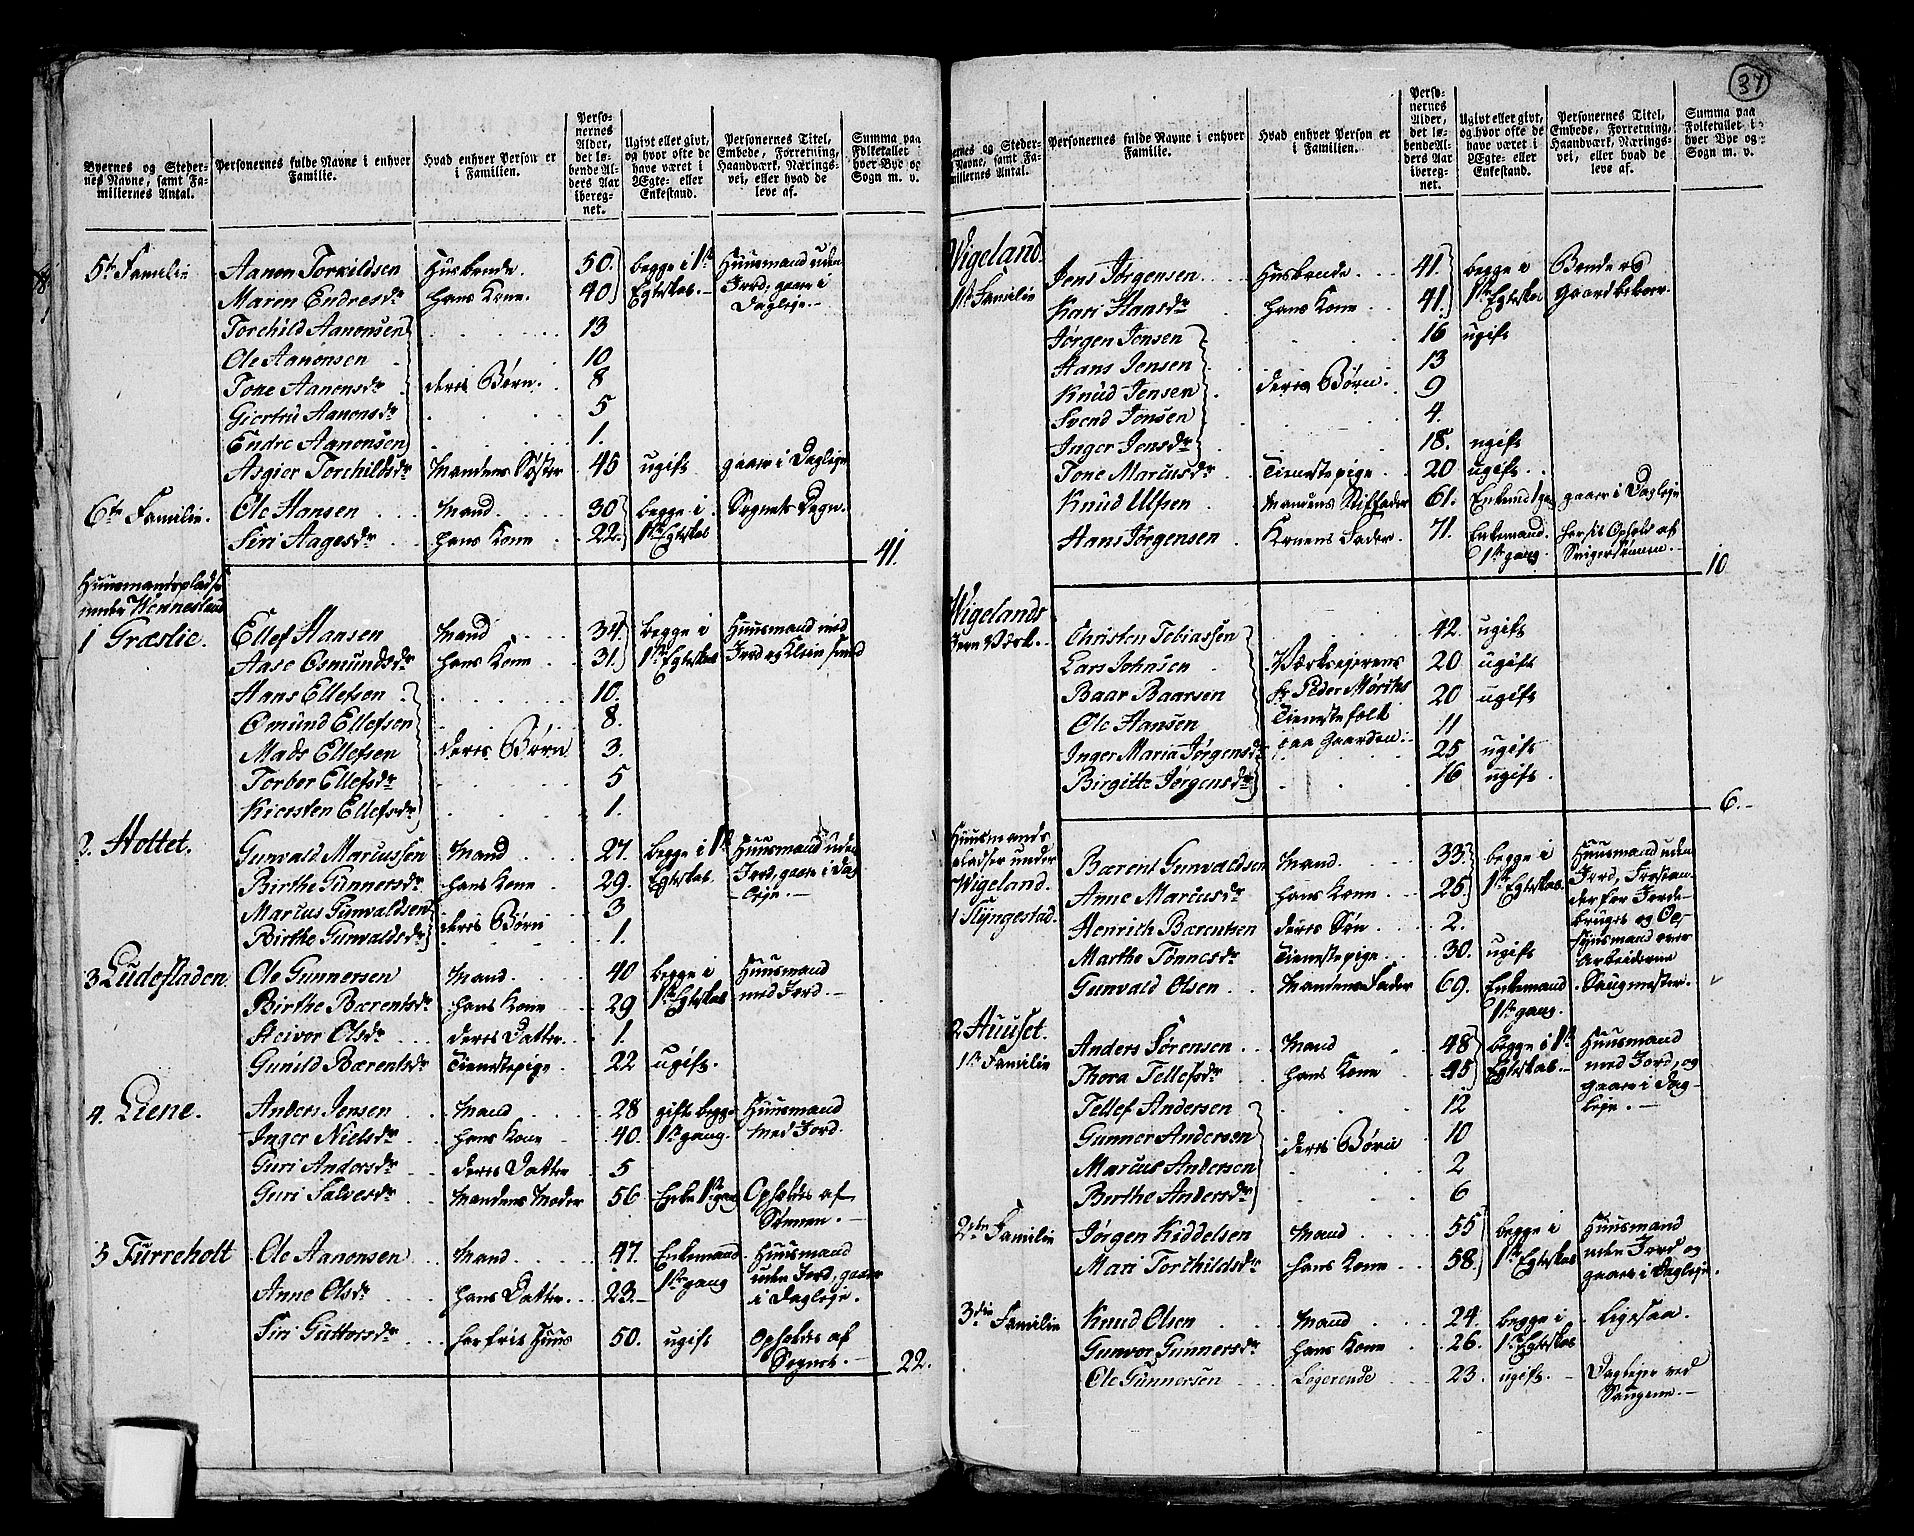 37
Byernes og Steder-
nes Navne, samt Fa-
miliernes Antal.
Personernes fulde Navne i enhver
Familie.
Hvad enhver Person er
i Familien.
Perso-
nernes
Alder,
det lø-
bende Al-
ders Aar
ibereg-
net.
Ugivt eller givt,
og hvor ofte de
have været i
Ægte- eller
Enkestand.
Personernes Titel,
Embede, Forretning,
Haandværk, Nærings-
vei, eller hvad de
leve af.
Summa paa
Folketallet i
hver Bye og
Sogn m. v.
5te Familie Aanon Torkildsen Husbonde. 50. begge i 1te Huusmand uden
Maren Endresdr hans Kone. 40 Egteskab. Jord, gaaer i
Torchild Aanonsen 13 Dagleje.
Ole Aanonsen 10
Tone Aanonsdr deres Børn. 8
Giertru Aanonsdr 5
Endre Aanonsen 1.
Asgier Torchildsdr Mandens Søster 45 ugift gaaer i Dagleje
6te Familie. Ole Hansen Mand. 30 begge i Sognets Degn.
Siri Aagesdr hans Kone 22. 1te Egteskab
41.
Huusmandspladse
under Wennesland
1 Græslie. Ellef Hansen Mand 34 begge i Huusmand med
Aase Osmundsdr hans Kone 31. 1te Egteskab Jord og Klein Smed
Hans Ellefsen 10.
Osmund Ellefsen 8.
Mads Ellefsen deres Børn 3.
Torbor Ellefsdr 5
Kiersten Ellefsdr 1.
2. Hottet. Gunvald Marcussen Mand 27. begge i 1te Huusmand uden
Birthe Gunnersdr hans Kone 29. Egteskab. Jord, gaaer i Dag
Marcus Gunvaldsen deres Børn 3 -leje.
Birthe Gunvaldsdr 1.
3 Ludefladen. Ole Gunnersen Mand. 40 begge i Huusmand
Birthe Barentsdr hans Kone 29 1te Egteskab med Jord.
Heivor Olsdr deres Datter 1.
Gunild Bærentsdr Tienestepige 22 ugift.
4. Liene. Anders Jensen Mand 28 gift begge Huusmand
Inger Nielsdr hans Kone 40. 1te gang. med Jord.
Guri Andersdr deres Datter 5
Guri Salvesdr Mandens Moder 56 Enke 1te gang Opholdes af
Sønnen.
5 Furreholt Ole Aanonsen Mand 47. Enkemand Huusmand
1te gang uden Jord, gaaer
Anne Olsdr hans Datter 23. i Dagleje.
Siri Guttorsdr har frit Huus 50. ugift opholdes af
Sognet.
22.
Byernes og Steder-
nes Navne, samt Fa-
miliernes Antal.
Personernes fulde Navne i enhver
Familie.
Hvad enhver Person er
i Familien.
Perso-
nernes
Alder,
det lø-
bende Al-
ders Aar
ibereg-
net.
Ugivt eller givt,
og hvor ofte de
have været i
Ægte- eller
Enkestand.
Personernes Titel,
Embede, Forretning,
Haandværk, Nærings-
vei, eller hvad de
leve af.
Summa paa
Folketallet i
hver Bye og
Sogn m. v.
Wigeland. Jens Jørgensen Husbonde 41. begge i Bonde og
1te Familie Kari Hansdr hans Kone 41. 1te Egteskab Gaardbeboer.
Jørgen Jensen 16 ugift
Hans Jensen 13
Knud Jensen deres Børn. 9
Svend Jensen 4.
Inger Jensdr 18. ugift
Tone Marcusdr Tienestepige 20 ugift
Knud Ulfsen Mandens Stiffader 61. Enkemand 1 gang gaaer i Dagleje
Hans Jørgensen Konens Fader 71. Enkemand har sit Ophold af
1te gang. Svigersønnen.
10
Wigelands
Jern Værk. Christen Tobiassen 42 ugift
Lars Johnsen Værksejerens 20 ugift
Baar Baarsen Hr Peder Mørchs 20 ugift
Ole Hansen Tienestefolk 11
Inger Maria Jørgensdr paa Gaarden. 25 ugift
Birgitte Jørgensdr 16 ugift
6.
Huusmands
pladser under
Wigeland. Bærent Gunvaldsen Mand. 33. begge i Huusmand uden
1 Slyngestad. Anne Marcusdr hans Kone 25 1te Egteskab Jord, Forstan
Henrich Bærentsen deres Søn 2. der for Jorde-
Marthe Tønnesdr Tienestepige 30. ugift bruget og Op-
synsmand over
Arbeiderne
Gunvald Olsen Mandens Fader 69. Enkemand Saugmester.
1te gang.
2 Huuset. Anders Sørensen Mand 48 begge i 1te Huusmand
1te Familie Thora Tellefsdr hans Kone 45 Egteskab. med Jord, og
Tellef Andersen 12 gaaer i Dag-
Gunner Andersen deres Børn 10 leje.
Marcus Andersen 2
Berthe Andersdr 6
2den Familie Jørgen Kiddelsen Mand 55 begge i Huusmand
Mari Torchildsdr hans Kone 58. 1te Egteskab uden Jord og
gaaer i Dagleje.
3die Familie Knud Olsen Mand 24. begge i Ligesaa.
Gunvor Gunnersdr hans Kone 26. 1te Egteskab
Ole Gunnersen Logerende 23 ugift. Daglejer ved
Saugene.